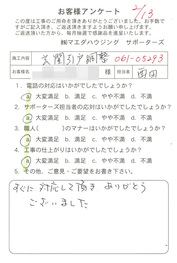 お客様アンケート 2/13
この度は工事のご用命を頂きありがとうございました。お手数で
すがご記入頂き、ご返送頂きますようお願い申し上げます。
ご返送頂いた方から、毎月抽選で感謝品を進呈いたします。
㈱マエダハウジング サポーターズ
施工内容 玄関引戸調整 061-05293
お客様名 様 担当者
1. 電話の対応はいかがでしたでしょうか?
a 大変満足 b. 満足 c. やや不満 d. 不満
2. サポーターズ担当者の応対はいかがでしたでしょうか?
a 大変満足 b. 満足 c. やや不満 d. 不満
3. 職人( )のマナーはいかがでしたでしょうか?
a 大変満足 b. 満足 c. やや不満 d. 不満
4. 工事の仕上がりはいかがでしたでしょうか?
a 大変満足 b. 満足 c. やや不満 d. 不満
5. その他、ご意見・ご要望をお書き下さい。
すぐに対応して頂きありがとう
ございました